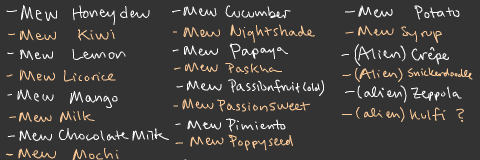 - Mew Honeydew
- Mew Kiwi
- Mew Lemon
- Mew Licorice
- Mew Mango
- Mew Milk
- Mew Chocolate Milk
- Mew Mochi
- Mew Cucumber
- Mew Nightshade
- Mew Papaya
- Mew Paskha
- Mew Passionfruit (old)
- Mew Passionsweet
- Mew Pimiento
- Mew Poppyseed
- Mew Potato
- Mew Syrup
- (Alien) Crêpe
- (Alien) Snickerdoodle
- (alien) Zeppola
- (alien) Kulfi ?